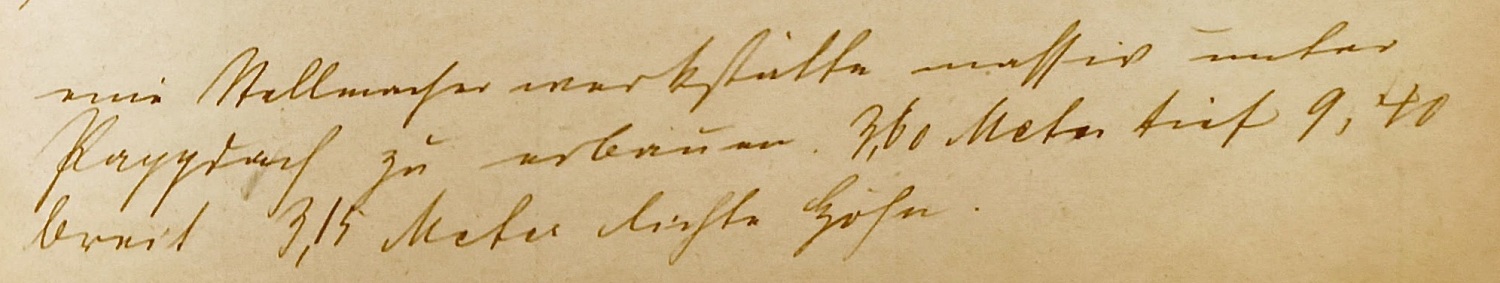 eine Stellmacherwerkstätte massiv unter
Pappdach zu erbauen. 3,60 Meter tief 9,40
breit 3,15 Meter lichte Höhe.